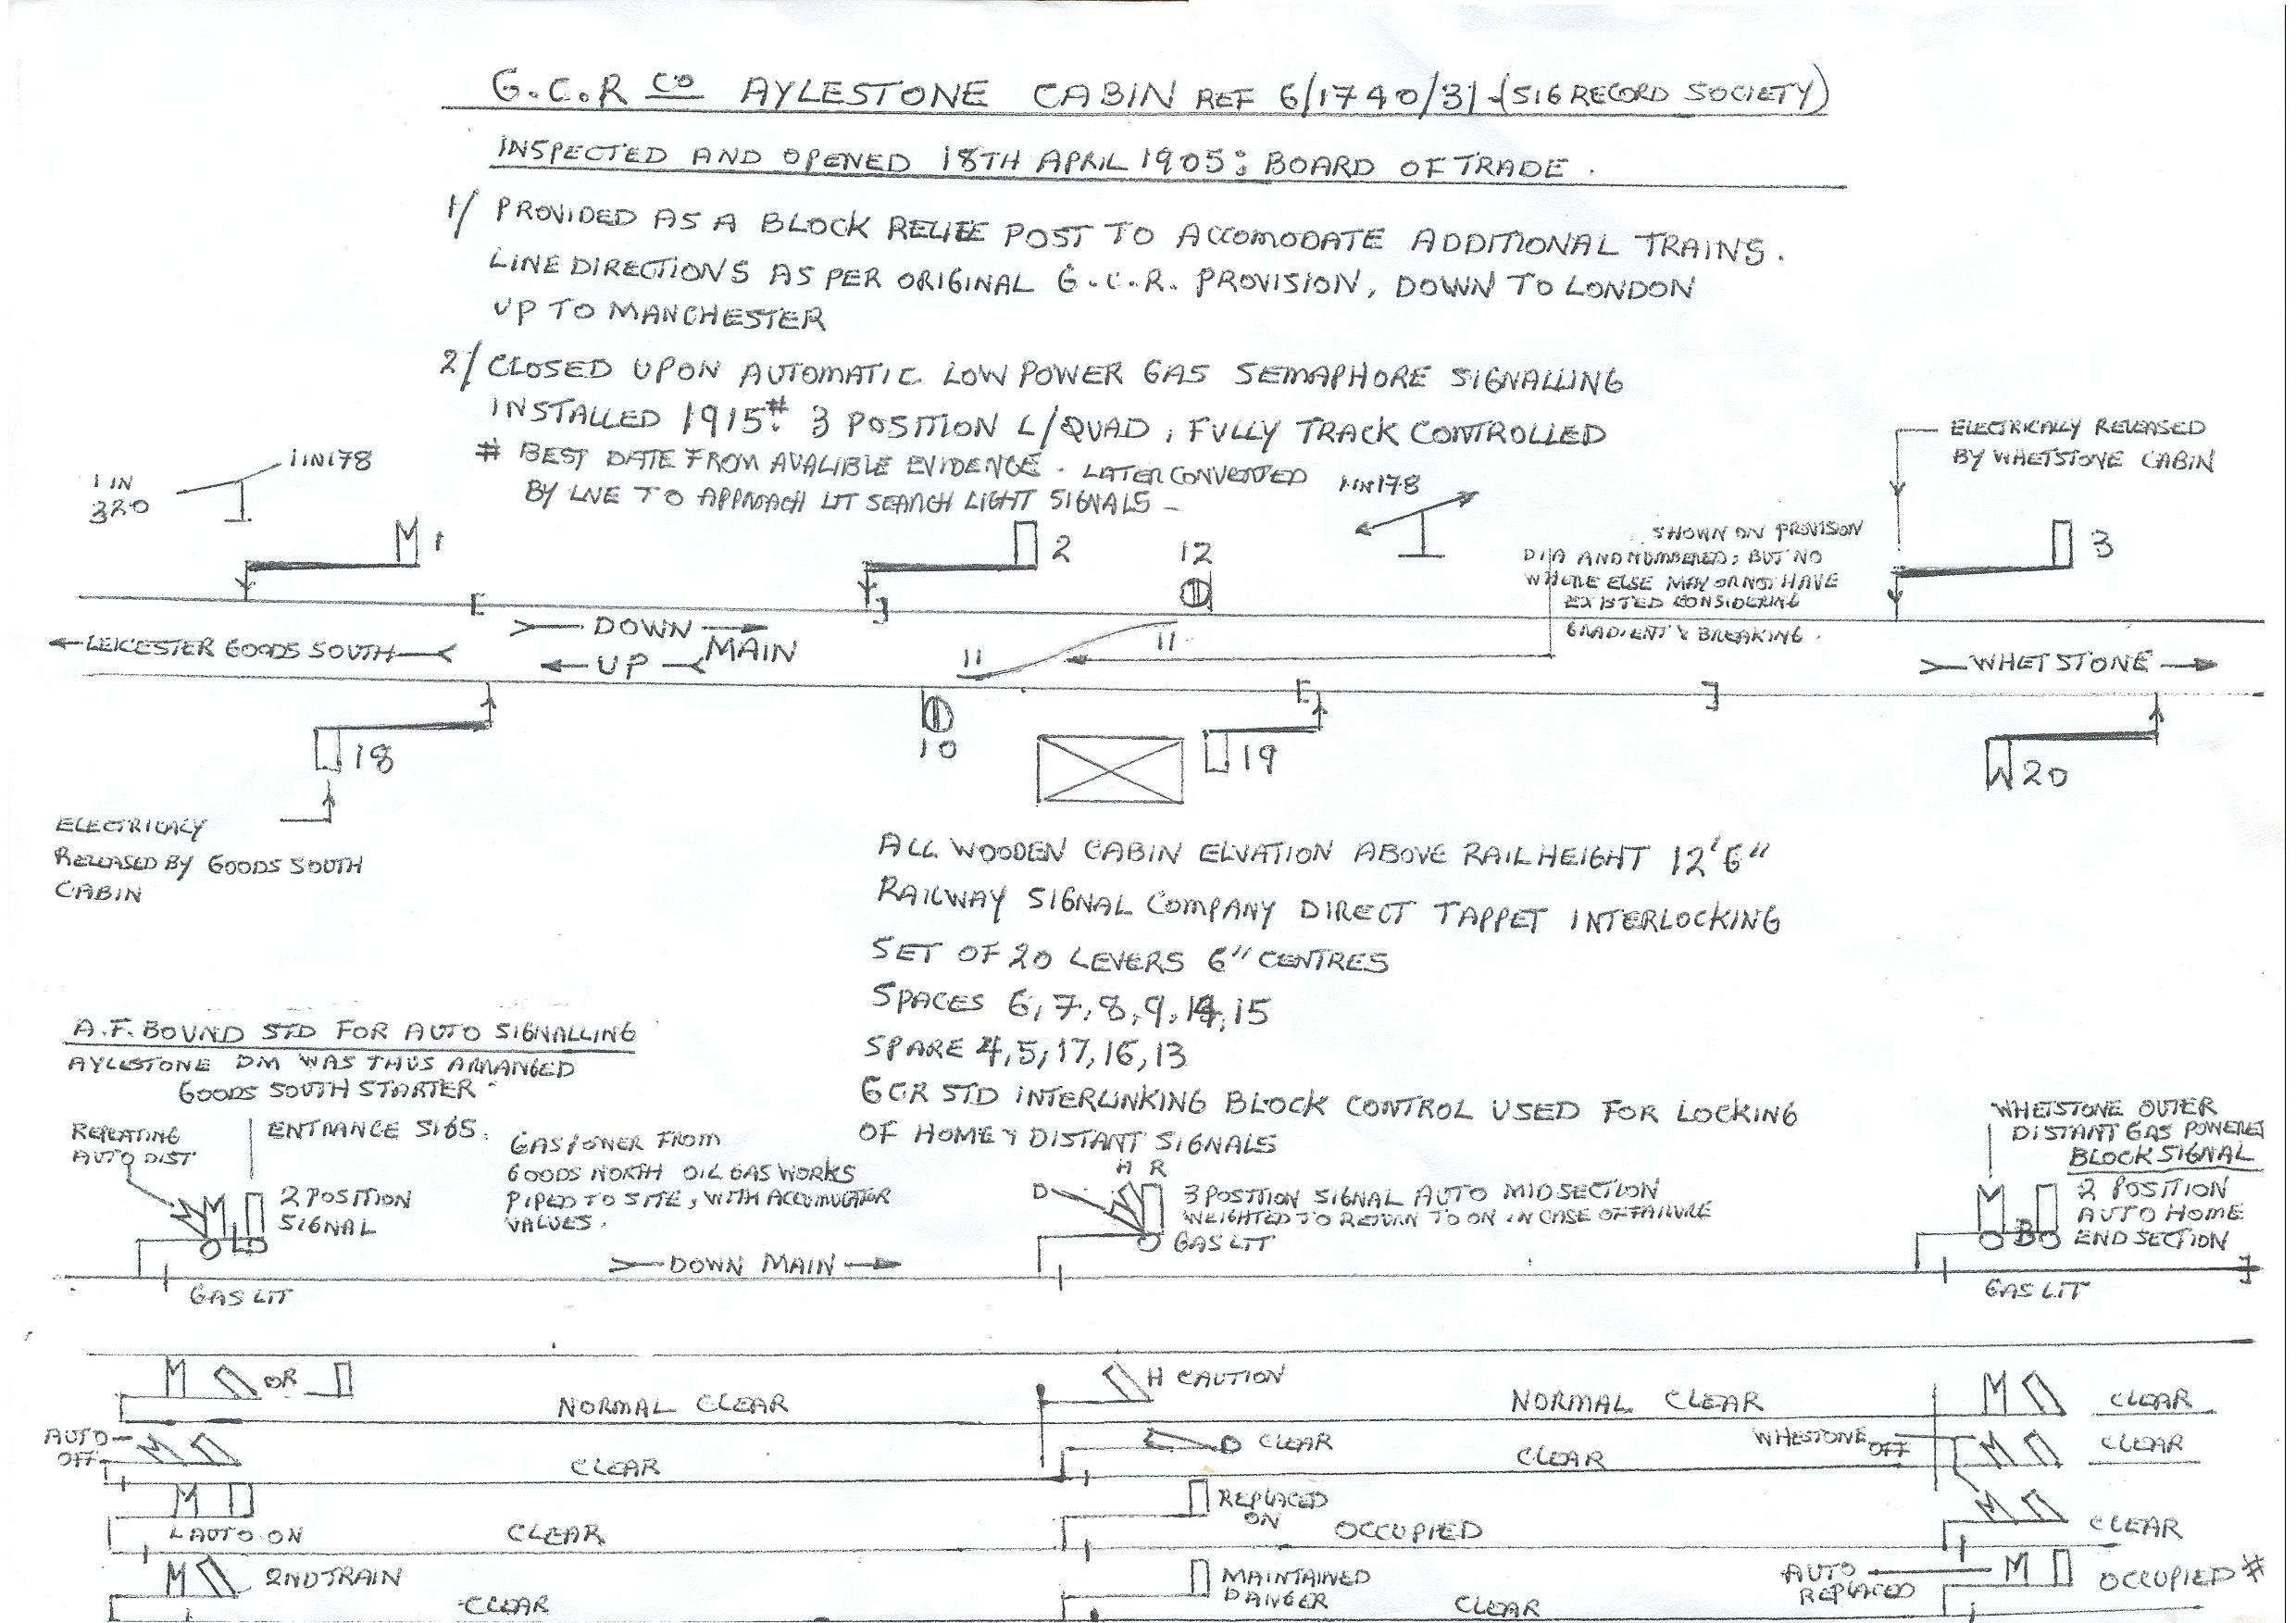 G.C.R CO AYLESTONE CABIN REF 6/1740/31 (SIG RECORD SOCIETY)
INSPECTED AND OPENED 18TH APRIL 1905: BOARD OF TRADE.
1/ PROVIDED AS A BLOCK RELIEF POST TO ACCOMODATE ADDITIONAL TRAINS.
LINE DIRECTIONS AS PER ORIGINAL G.C.R. PROVISION, DOWN TO LONDON
UP TO MANCHESTER
2/ CLOSED UPON AUTOMATIC LOW POWER GAS SEMAPHORE SIGNALLING
INSTALLED 1915.# 3 POSITION L/QUAD, FULLY TRACK CONTROLLED
# BEST DATE FROM AVALIBLE EVIDENCE. LATER CONVERTED
BY LNE TO APPROACH LIT SEARCH LIGHT SIGNALS -
1 IN 320
1 IN 178
1 IN 178
ELECTRICALLY RELEASED
BY WHETSTONE CABIN
SHOWN ON PROVISION
DIA AND NUMBERED; BUT NO
WHERE ELSE MAY OR NOT HAVE
EXISTED CONSIDERING
GRADIENT & BREAKING.
M 1
2
12
3
LEICESTER GOODS SOUTH
DOWN
MAIN
UP
11
11
WHETSTONE
18
10
19
20
ELECTRICALY
RELEASED BY GOODS SOUTH
CABIN
ALL WOODEN CABIN ELVATION ABOVE RAIL HEIGHT 12'6"
RAILWAY SIGNAL COMPANY DIRECT TAPPET INTERLOCKING
SET OF 20 LEVERS 6" CENTRES
SPACES 6,7,8,9,14,15
SPARE 4,5,17,16,13
GCR STD INTERLINKING BLOCK CONTROL USED FOR LOCKING
OF HOME & DISTANT SIGNALS
A.F. BOUND STD FOR AUTO SIGNALLING
AYLESTONE DM WAS THUS ARRANGED
GOODS SOUTH STARTER
ENTRANCE SIGS.
REPEATING
AUTO DIST
2 POSITION
SIGNAL
GAS LIT
GAS POWER FROM
GOODS NORTH OIL GAS WORKS
PIPED TO SITE, WITH ACCUMULATOR
VALUES.
DOWN MAIN
H R
D
3 POSITION SIGNAL AUTO MID SECTION
WEIGHTED TO RETURN TO ON IN CASE OF FAILURE
GAS LIT
WHETSTONE OUTER
DISTANT GAS POWERED
BLOCK SIGNAL
2 POSITION
AUTO HOME
END SECTION
GAS LIT
M OR
NORMAL CLEAR
H CAUTION
NORMAL CLEAR
M
CLEAR
AUTO
OFF
M
CLEAR
D CLEAR
CLEAR
WHESTONE OFF
M
CLEAR
M
AUTO ON
CLEAR
REPLACED
ON
OCCUPIED
M
CLEAR
M 2ND TRAIN
CLEAR
MAINTAINED
DANGER
CLEAR
AUTO
REPLACED
M
OCCUPIED #